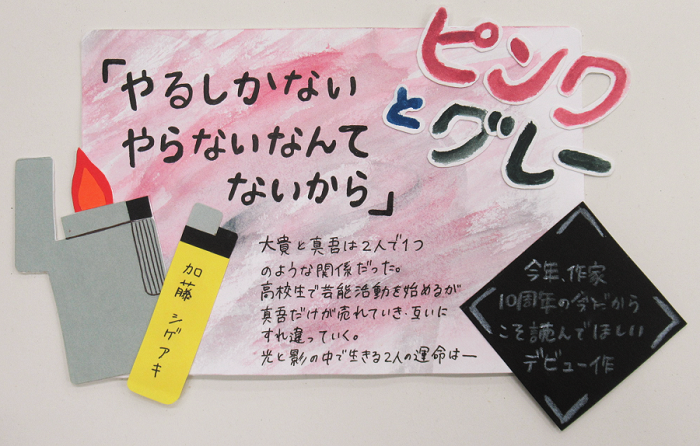 ピンク
と
グレー
「やるしかない
やらないなんて
ないから」
加藤シゲアキ
大貴と真吾は2人で1つ
のような関係だった。
高校生で芸能活動を始めるが
真吾だけが売れていき、互いに
すれ違っていく。
光と影の中で生きる2人の運命は―
今年、作家
10周年の今だから
こそ読んでほしい
デビュー作